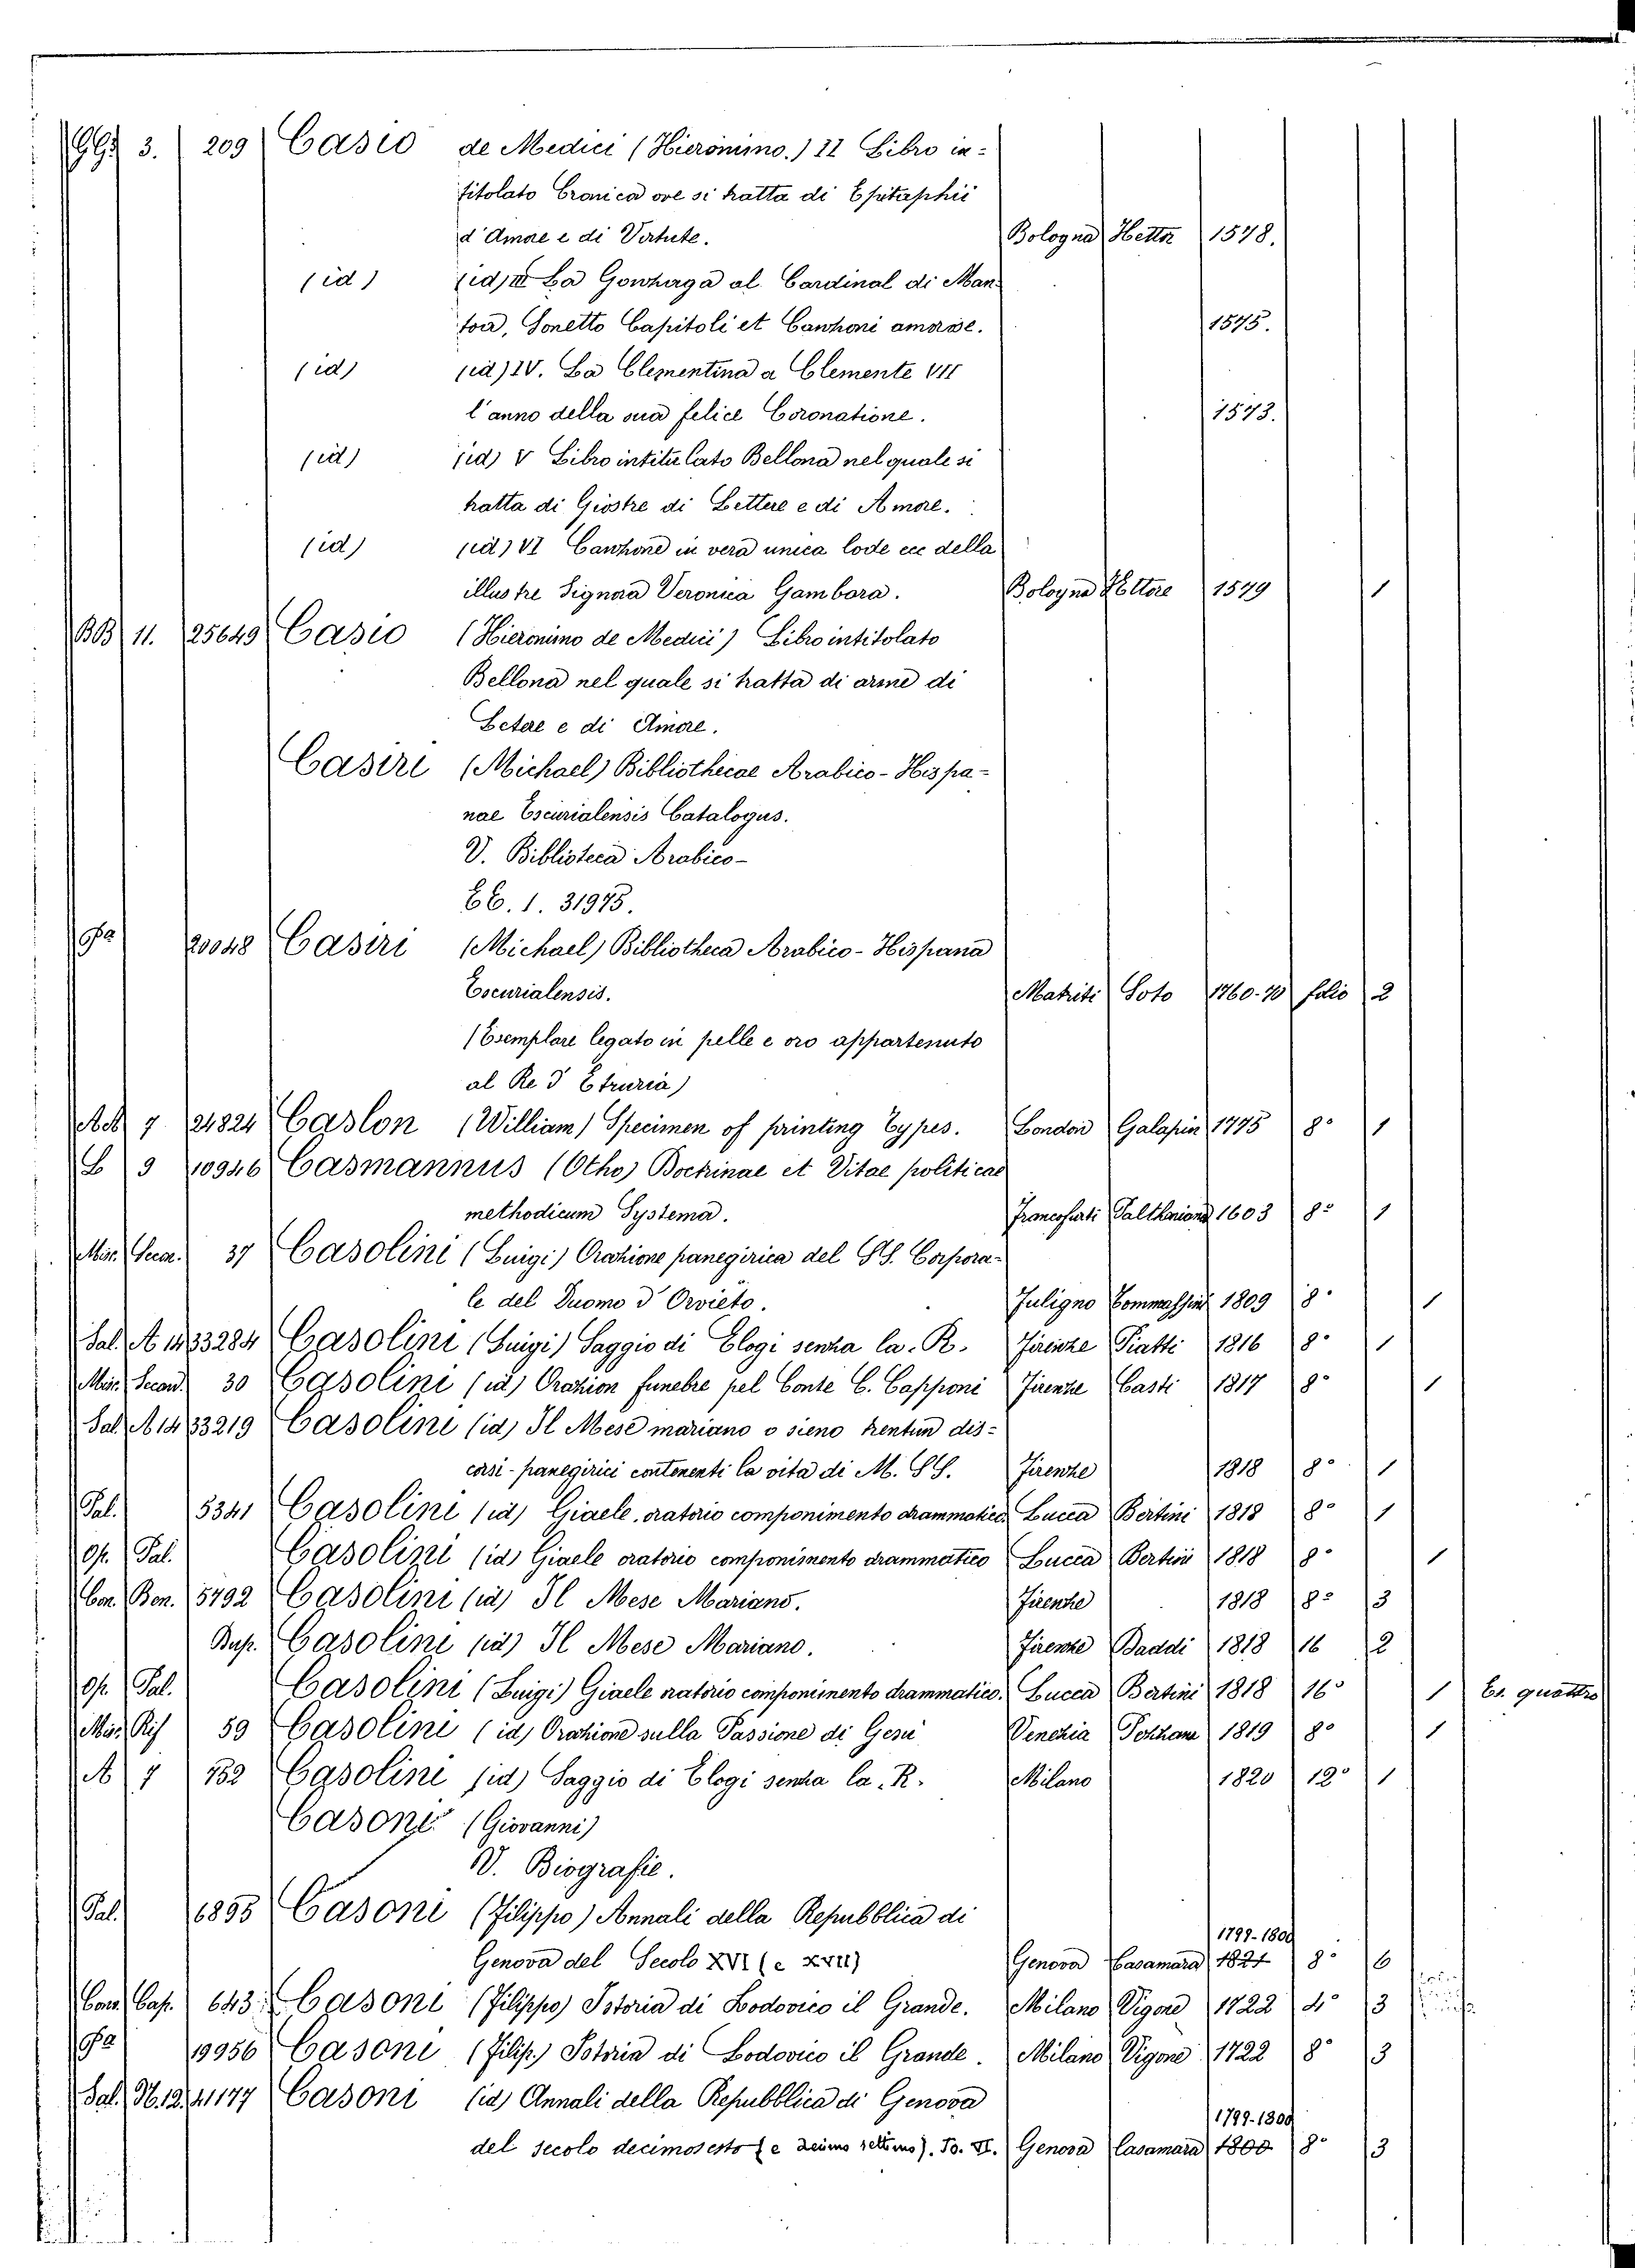 GG 3. 209 Casio de Medici (Hieronimo.) II Libro in-
titolato Cronica ove si tratta di Epitaphii
d'Amore e di Virtute. Bologna Hettor 1528.
(id) (id) III La Gonzaga al Cardinal di Man-
toa, Sonetto Capitoli et Canzoni amorose. 1525.
(id) (id) IV. La Clementina a Clemente VII
l'anno della sua felice Coronatione. 1523.
(id) (id) V Libro intitulato Bellona nel quale si
tratta di Giostre di Lettere e di Amore.
(id) (id) VI Canzone in vera unica lode ecc della
illustre Signora Veronica Gambora. Bologna Hettore 1529 1
BB 11. 25649 Casio (Hieronimo de Medici) Libro intitolato
Bellona nel quale si tratta di arme di
Letere e di Amore.
Casiri (Michael) Bibliothecae Arabico-Hispa-
nae Escurialensis Catalogus.
V. Biblioteca Arabico-
EE. 1. 31975.
20048 Casiri (Michael) Bibliotheca Arabico-Hispana
Escurialensis. Matriti Soto 1760-70 folio 2
(Esemplare legato in pelle e oro appartenuto
al Re d'Etruria)
7 24824 Caslon (William) Specimen of printing Types. London Galapin 1775 8° 1
L 9 10946 Casmannus (Otho) Doctrinae et Vitae politicae
methodicum Systema. Francofurti Palthenione 1603 8° 1
Min. Secon. 37 Casolini (Luigi) Orazione panegirica del SS. Corpora-
le del Duomo d'Orvieto. Fuligno Tommassini 1809 8° 1
Sal. A 14 33284 Casolini (Luigi) Saggio di Elogi senza la R. Firenze Piatti 1816 8° 1
Min. Secon. 30 Casolini (id) Orazion funebre pel Conte C. Capponi Firenze Casti 1817 8° 1
Sal. A 14 33219 Casolini (id) Il Mese mariano o sieno trentun dis-
corsi-panegirici contenenti la vita di M. SS. Firenze 1818 8° 1
Pal. 5341 Casolini (id) Giaele, oratorio componimento drammatico Lucca Bertini 1818 8° 1
Op. Pal. Casolini (id) Giaele oratorio componimento drammatico Lucca Bertini 1818 8° 1
Con. Bon. 5792 Casolini (id) Il Mese Mariano. Firenze 1818 8° 3
Dup. Casolini (id) Il Mese Mariano. Firenze Daddi 1818 16 2
Op. Pal. Casolini (Luigi) Giaele oratorio componimento drammatico. Lucca Bertini 1818 16° 1 Es. quattro
Min. Rif 59 Casolini (id) Orazione sulla Passione di Gesù Venezia 1819 8° 1
A 7 752 Casolini (id) Saggio di Elogi senza la R. Milano 1820 12° 1
Casoni (Giovanni)
V. Biografie.
Pal. 6895 Casoni (Filippo) Annali della Repubblica di
1799-1800
Genova del Secolo XVI (e XVII) Genova Casamara 8° 6
Con. Cap. 643 Casoni (Filippo) Istoria di Lodovico il Grande. Milano Vigone 1722 4° 3
19956 Casoni (Filip.) Istoria di Lodovico il Grande. Milano Vigone 1722 8° 3
Sal. N. 12. 41177 Casoni (id) Annali della Repubblica di Genova
1799-1800
del secolo decimosesto (e decimo settimo). To. VI. Genova Casamara 1800 8° 3